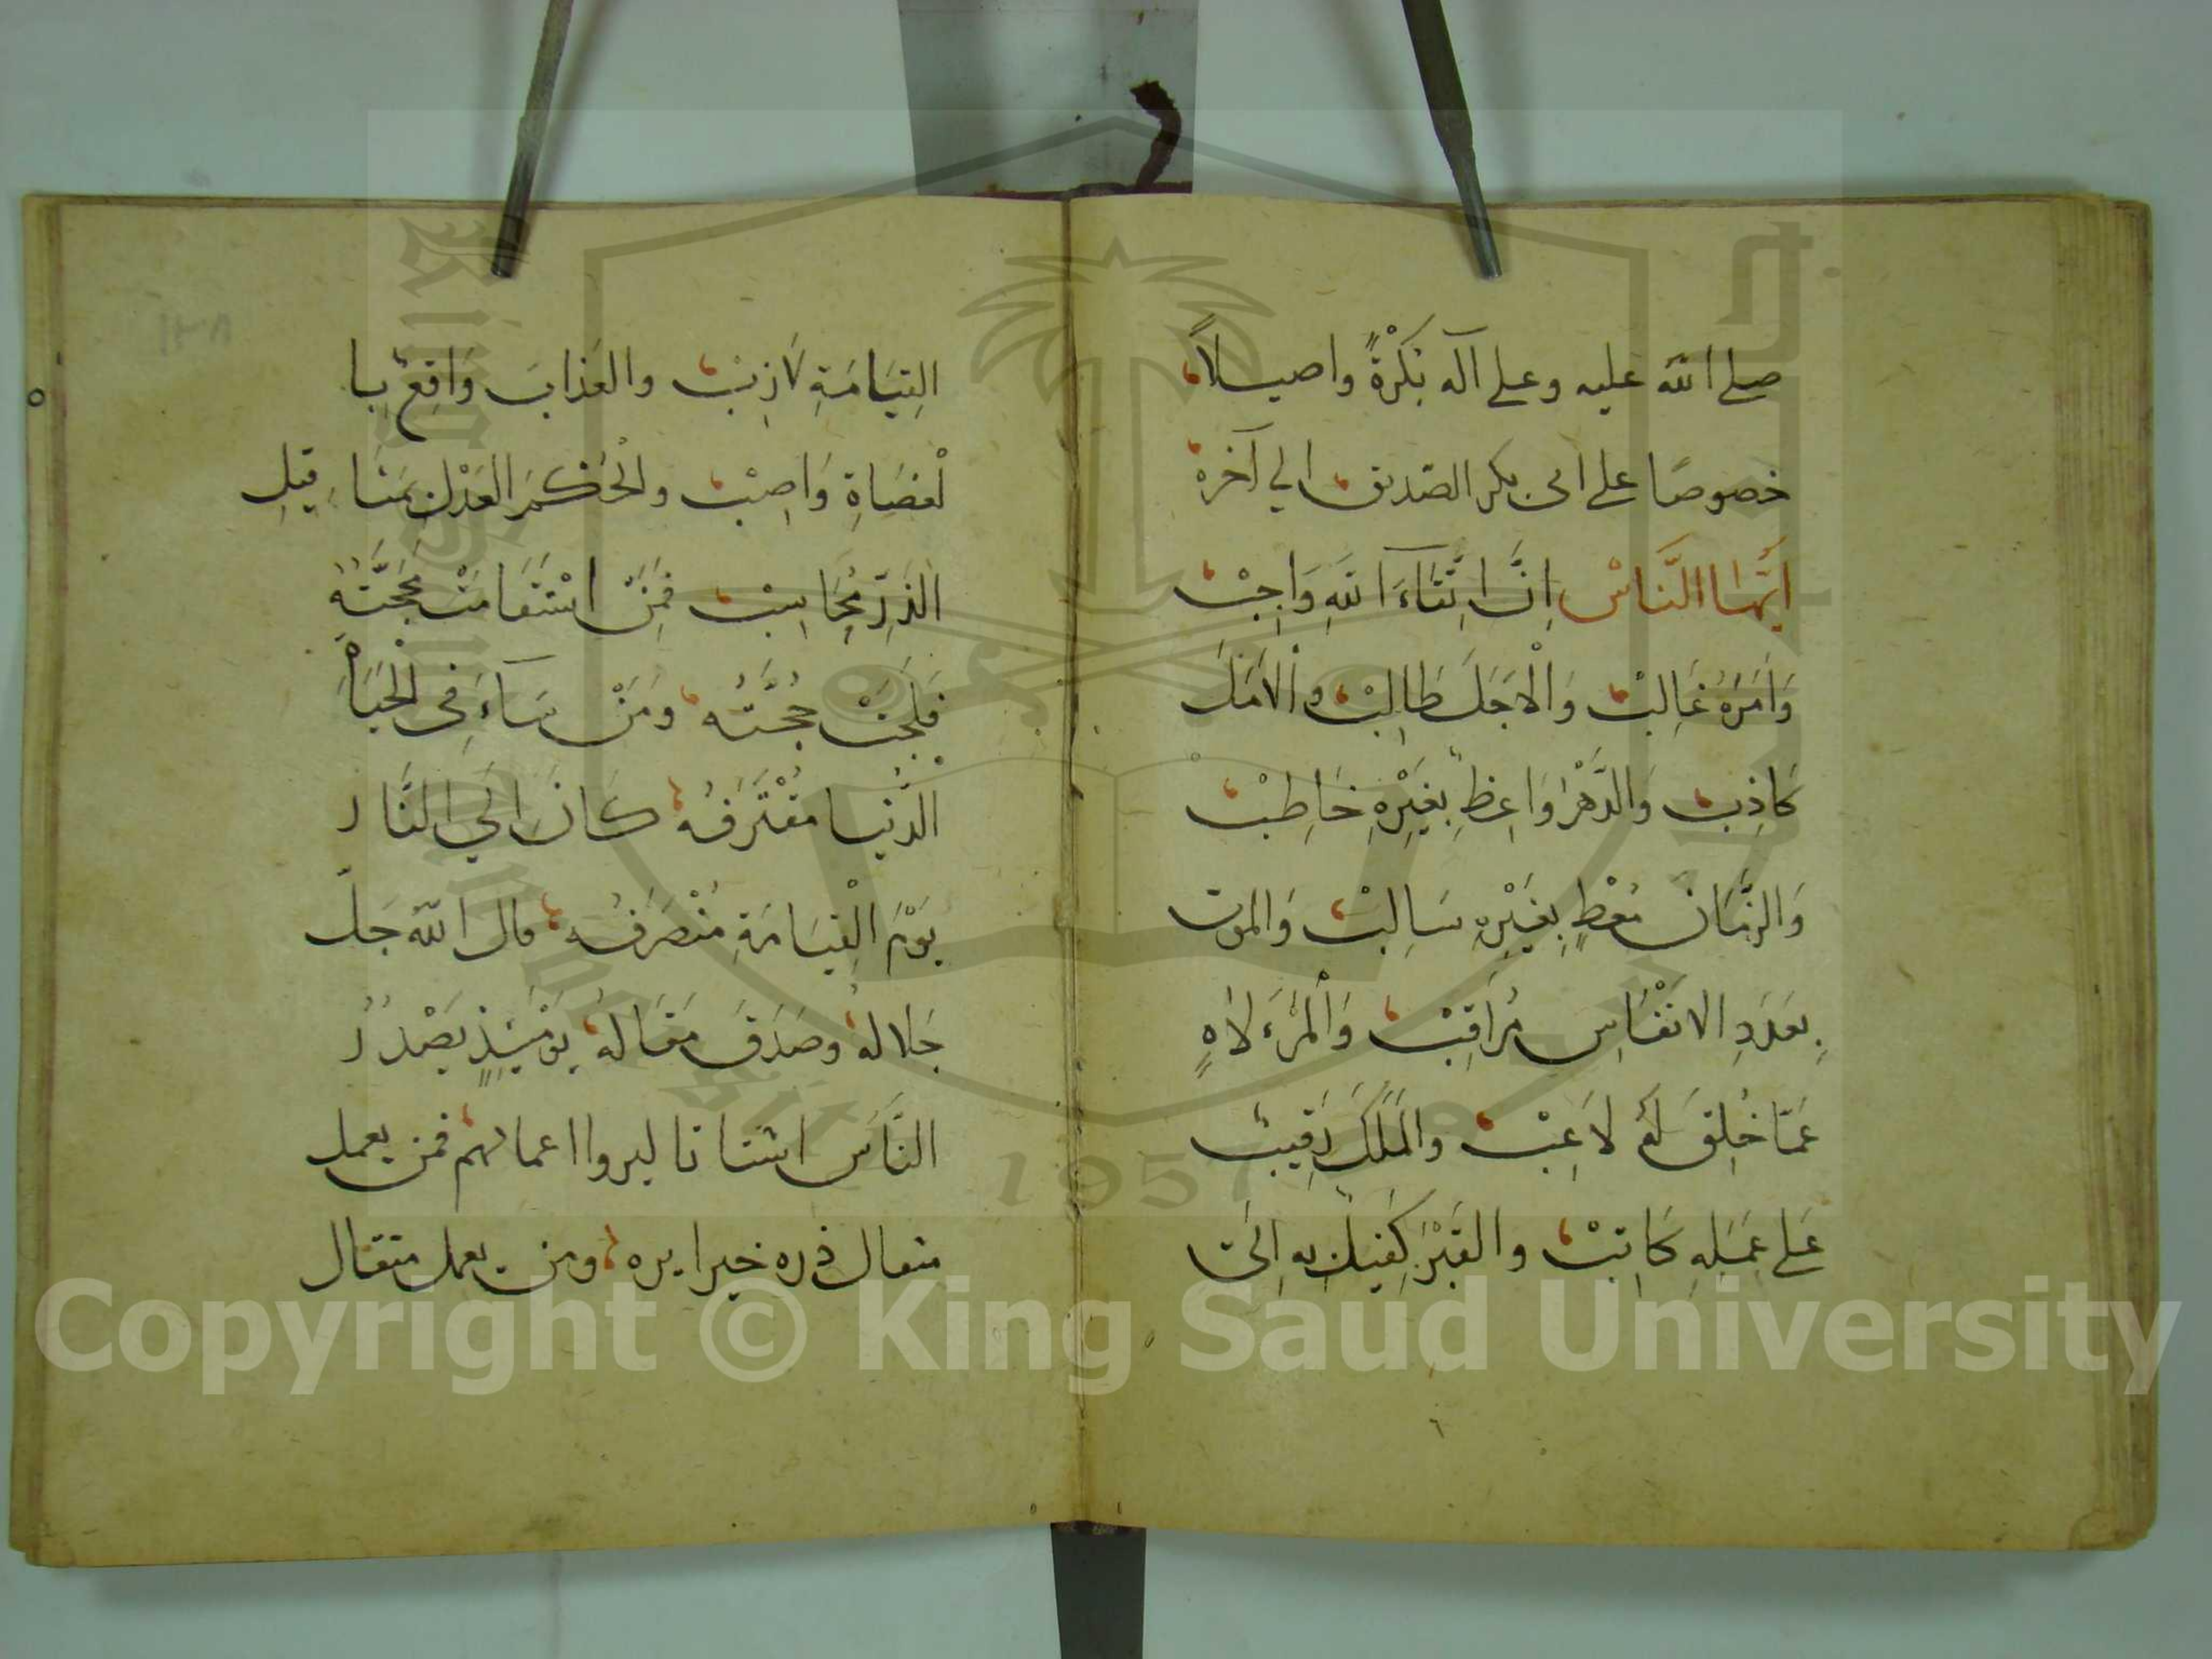 صلى الله عليه وعلى آله بُكْرَةً واصيلاً
خصوصًا على ابى بكر الصديق الي آخره
اَيُّهَا النَّاسْ اِنَّ اتِّقَاءَ اللهِ وَاجِبْ
وَاَمْرَهُ غَالِبْ وَالْاَجَلَ طَالِبْ والْاَمَلَ
كَاذِبْ وَالدَّهْرَ وَاعِظٌ بِغَيْرِهِ خَاطِبْ
وَالزَّمَانَ مُعْطٍ بِغَيْرِهِ سَالِبْ وَالموت
بِعَدَدِ الانْفَاسِ مُرَاقِبْ وَالْمَرْءَ لَاهٍ
عَمَّا خُلِقَ لَهُ لَاعِبْ والمَلَكَ رَقِيبْ
عَلى عَمَلِهِ كَاتِبْ والقَبْرَ كَفِيلٌ به اِلَى
القِيَامَةِ لَازِبْ والعَذابَ وَاقِعٌ بِا
لْعُصَاةِ وَاصِبْ والْحُكْمَ العَدْلَ بِمَثَاقِيلِ
الذَرِّ مُحَاسِبْ فَمَنْ اسْتَقَامَتْ مَحَجَّتُهُ
فَلَجَتْ حُجَّتُه وَمَنْ سَآءَ فِى الْحَيَاةِ
الدُّنْيا مُقْتَرَفُه كَانَ اِلَى النَّار
يَوْمَ الْقِيَامَةِ مُنْصَرَفُه قال الله جَلَّ
جَلاله وصَدَقَ مَقَاله يَوْمَئِذٍ يَصْدُرُ
النَّاسُ اشتاتا ليروا اعمالهم فمن يعمل
مثقال ذره خيرا يره ومن يعمل مثقال
١٣٨
Copyright © King Saud University
1957